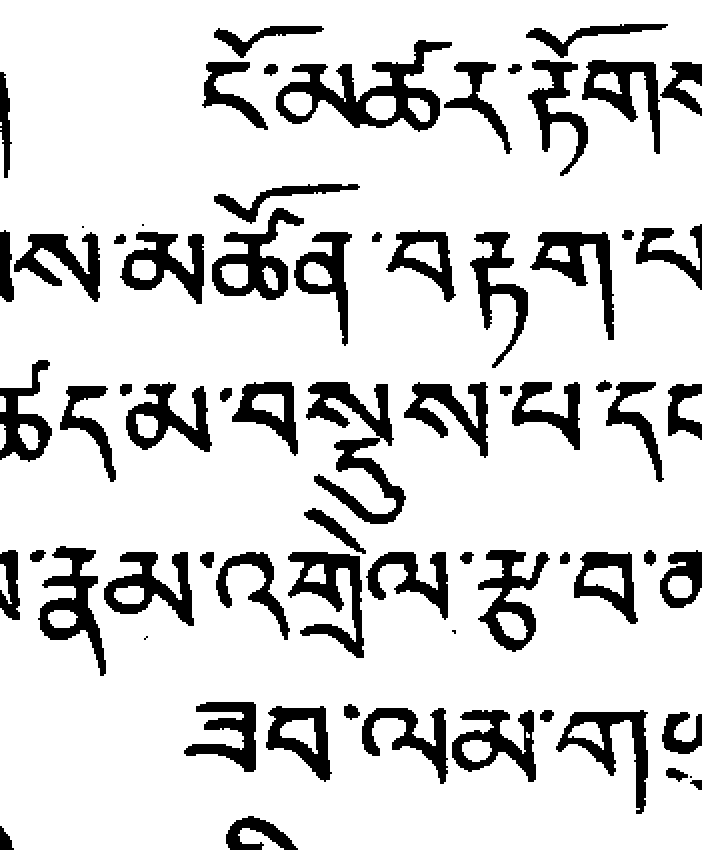 ངོ་མཚར་རྟོགས
ས་མཚོན་བརྟག་པ
ཚད་མ་བསྡུས་པ་དང
རྣམ་འགྲེལ་རྩ་བ་མ
ཟབ་ལམ་ག